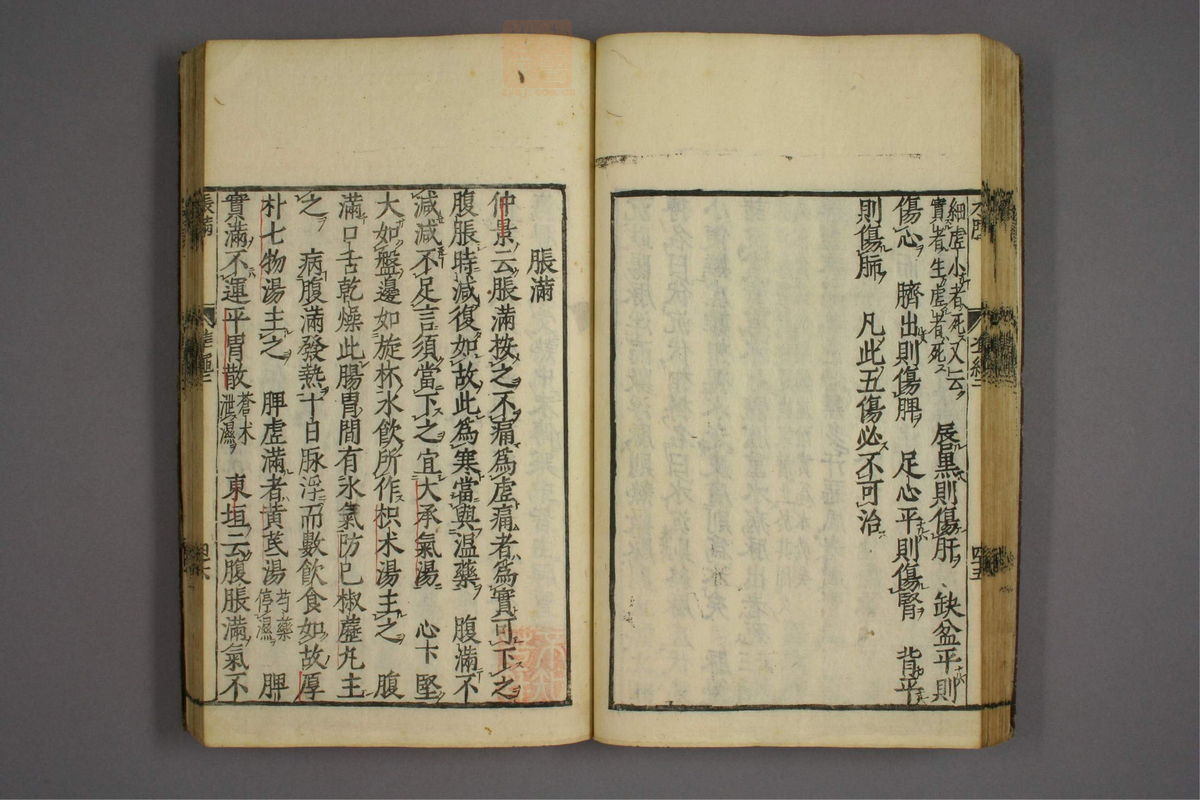 細虚小者死又云
實者生虚者死
唇黒則傷肝　缺盆平則
傷心而臍出則傷脾　足心平則傷腎　背平
則傷肺　凡此五傷必不可治
脹滿
仲景云脹滿按之不痛爲虚痛者爲實可下之
腹脹時減復如故此爲寒當與温藥　腹滿不
減減不足言須當下之宜大承氣湯　心下堅
大如盤邊如旋杯水飲所作枳术湯主之　腹
滿口舌乾燥此腸胃間有水氣防已椒藶丸主
之　病腹滿發熱十日脉浮而數飲食如故厚
朴七物湯主之　脾虚滿者黄芪湯芍藥停濕　脾
實滿不運平胃散蒼术泄濕　東垣云腹脹滿氣不
脹滿
四十六
四十五